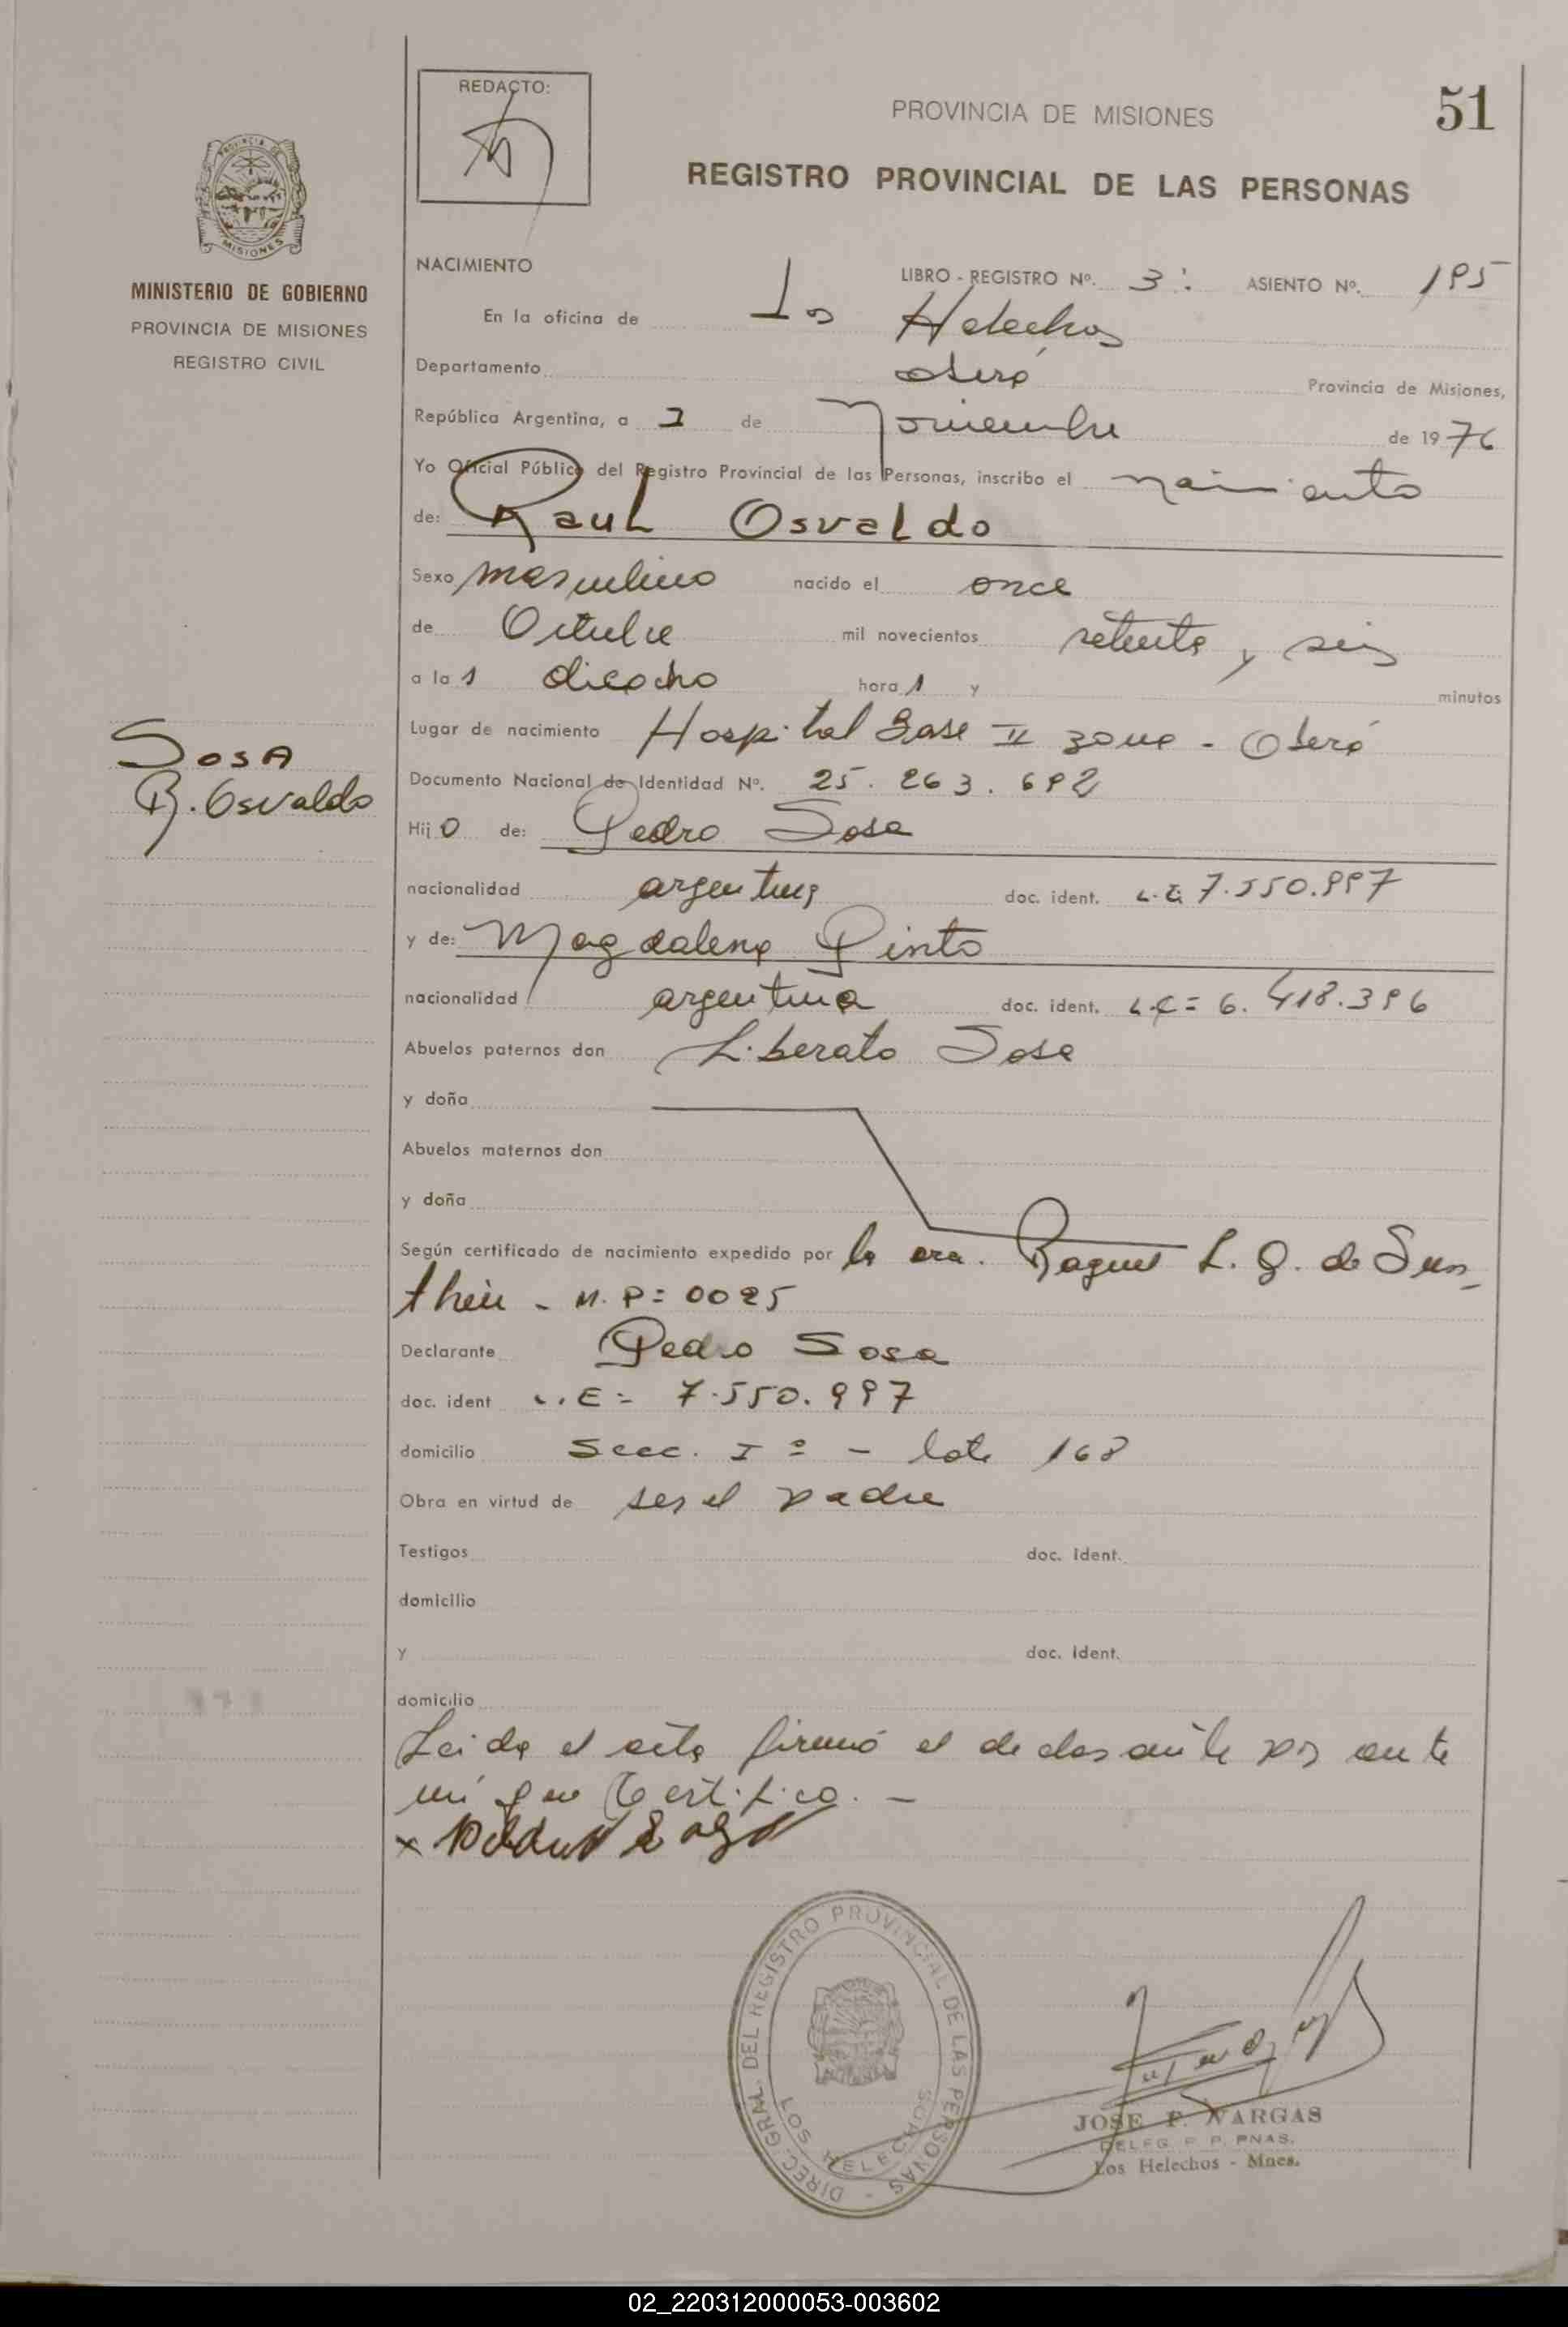 REDACTO:
PROVINCIA DE MISIONES
51
REGISTRO PROVINCIAL DE LAS PERSONAS
MISIONES
MINISTERIO DE GOBIERNO
PROVINCIA DE MISIONES
REGISTRO CIVIL
NACIMIENTO LIBRO - REGISTRO Nº. 3: ASIENTO Nº. 195
En la oficina de Los Helechos
Departamento Oberá Provincia de Misiones,
República Argentina, a 2 de Noviembre de 1976
Yo Oficial Público del Registro Provincial de las Personas, inscribo el nacimiento
de: Raul Osvaldo
Sexo masculino nacido el once
de Octubre mil novecientos setenta y seis
a la s dieciocho hora s y minutos
Lugar de nacimiento Hospital Base II zona - Oberá
SOSA
R. Osvaldo
Documento Nacional de Identidad Nº. 25.263.692
Hij o de: Pedro Sosa
nacionalidad argentina doc. ident. L.E. 7.550.997
y de: Magdalena Pinto
nacionalidad argentina doc. ident. L.C= 6.418.396
Abuelos paternos don Liberato Sosa
y doña
Abuelos maternos don
y doña
Según certificado de nacimiento expedido por la Dra. Raquel L. G. de Sun-
thein - M.P= 0025
Declarante Pedro Sosa
doc. ident L.E= 7.550.997
domicilio Secc. Iª - lote 168
Obra en virtud de ser el padre
Testigos doc. ident.
domicilio
y doc. ident.
domicilio
Leida el acta firmó el declarante por ante
mí que Certifico. -
x
DIREC. GRAL. DEL REGISTRO PROVINCIAL DE LAS PERSONAS -
LOS HELECHOS
JOSE F. VARGAS
DELEG. R. P. PNAS.
Los Helechos - Mnes.
02_220312000053-003602